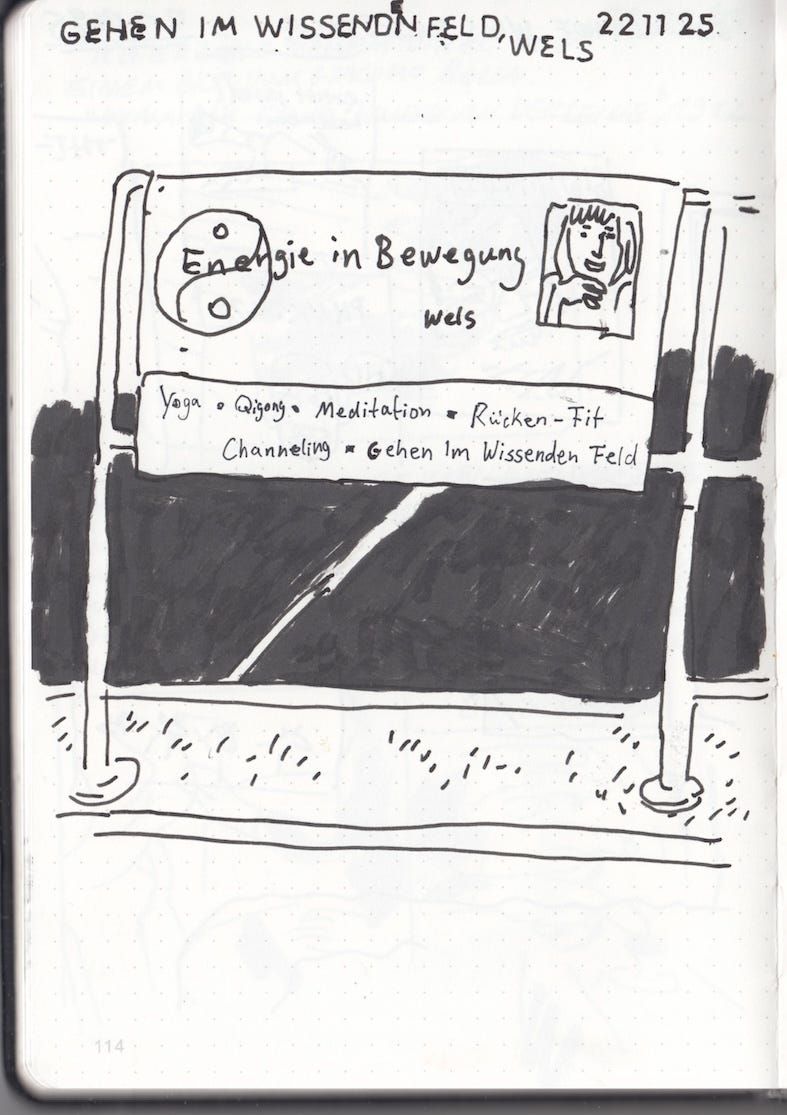 GEHEN IM WISSENDEN FELD, WELS 22 11 25
Energie in Bewegung
Wels
Yoga • Qigong • Meditation • Rücken-Fit
Channeling • Gehen Im Wissenden Feld
114